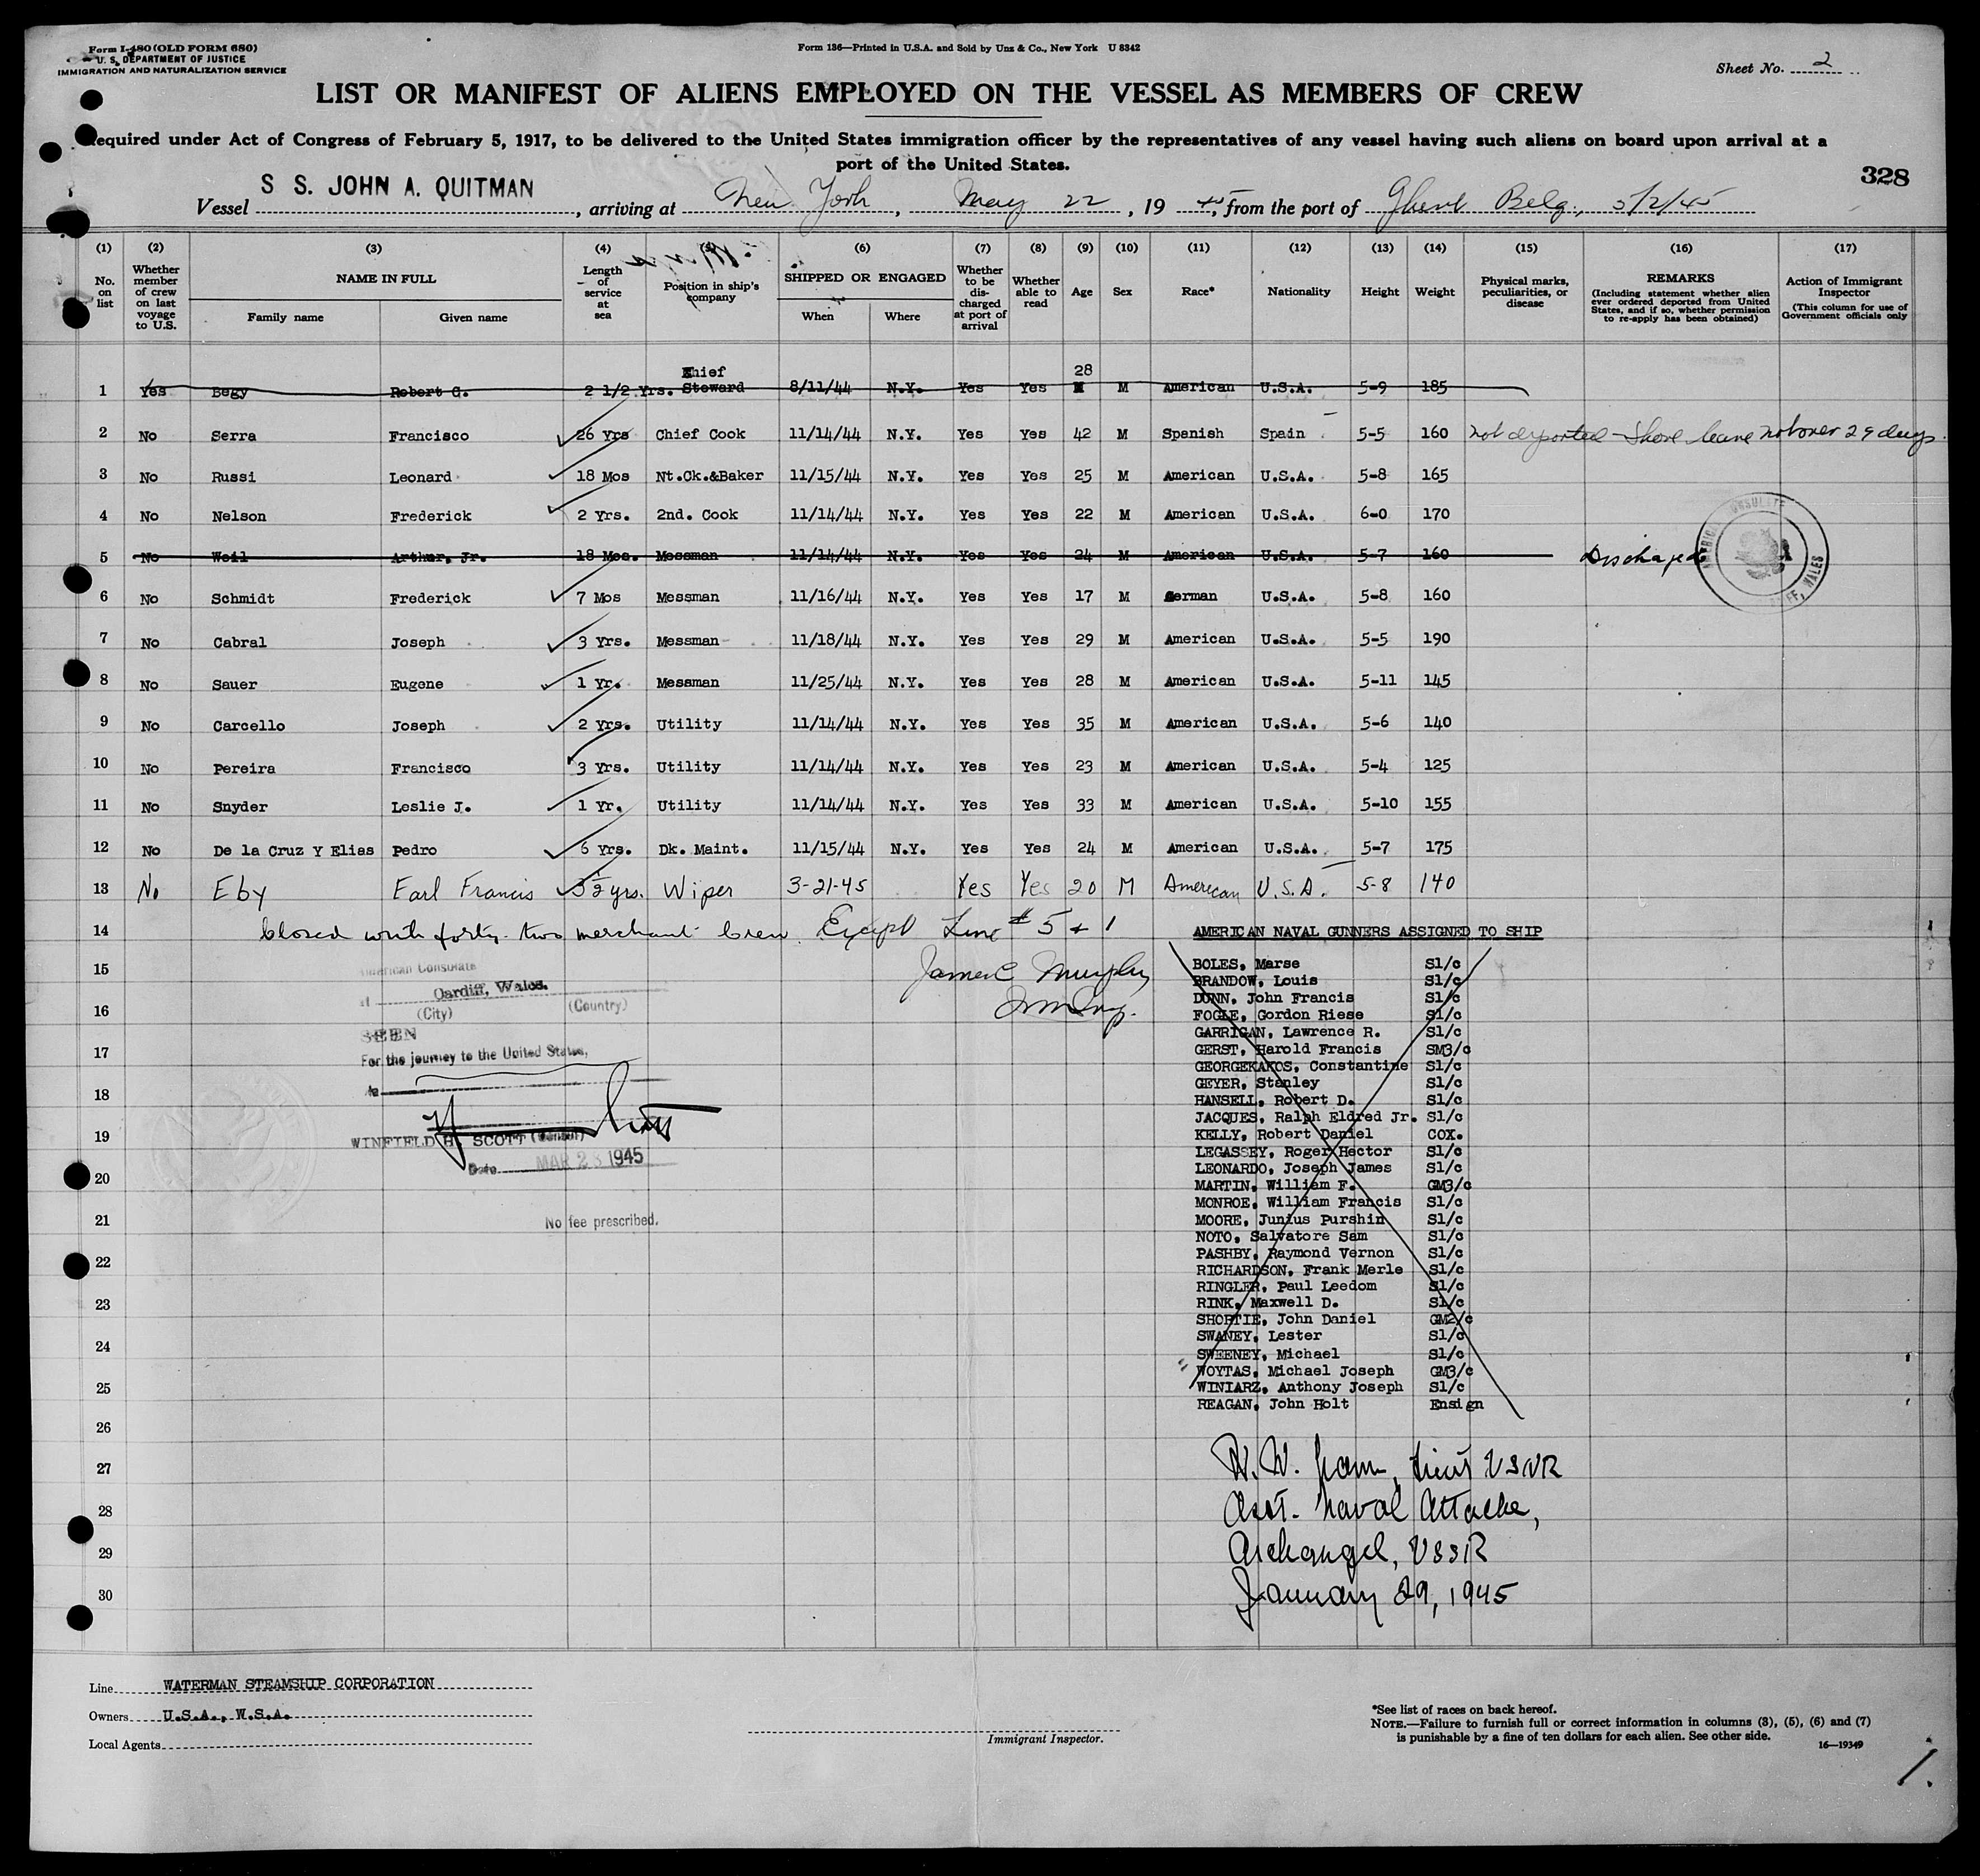 Form I-480 (OLD FORM 680)
U. S. DEPARTMENT OF JUSTICE
IMMIGRATION AND NATURALIZATION SERVICE
Form 136—Printed in U.S.A. and Sold by Unz & Co., New York U 8342
Sheet No. 2
LIST OR MANIFEST OF ALIENS EMPLOYED ON THE VESSEL AS MEMBERS OF CREW
Required under Act of Congress of February 5, 1917, to be delivered to the United States immigration officer by the representatives of any vessel having such aliens on board upon arrival at a
port of the United States.
328
Vessel S S. JOHN A. QUITMAN, arriving at New York, May 22, 1945, from the port of Ghent Belg., 5/2/45
(1) (2) (3) (4) (5) (6) (7) (8) (9) (10) (11) (12) (13) (14) (15) (16) (17)
No. on list
Whether member of crew on last voyage to U.S.
NAME IN FULL
Family name
Given name
Length of service at sea
Position in ship's company
SHIPPED OR ENGAGED
When
Where
Whether to be discharged at port of arrival
Whether able to read
Age
Sex
Race*
Nationality
Height
Weight
Physical marks, peculiarities, or disease
REMARKS
(Including statement whether alien ever ordered deported from United States, and if so, whether permission to re-apply has been obtained)
Action of Immigrant Inspector
(This column for use of Government officials only
1 Yes Begy Robert G. 2 1/2 Yrs. Chief Steward 8/11/44 N.Y. Yes Yes 28 M American U.S.A. 5-9 185
2 No Serra Francisco 26 Yrs Chief Cook 11/14/44 N.Y. Yes Yes 42 M Spanish Spain 5-5 160 not deported - Shore leave not over 29 days.
3 No Russi Leonard 18 Mos Nt.Ck.&Baker 11/15/44 N.Y. Yes Yes 25 M American U.S.A. 5-8 165
4 No Nelson Frederick 2 Yrs. 2nd. Cook 11/14/44 N.Y. Yes Yes 22 M American U.S.A. 6-0 170
5 No Weil Arthur, Jr. 18 Mos. Messman 11/14/44 N.Y. Yes Yes 24 M American U.S.A. 5-7 160 Discharged
6 No Schmidt Frederick 7 Mos Messman 11/16/44 N.Y. Yes Yes 17 M German U.S.A. 5-8 160
7 No Cabral Joseph 3 Yrs. Messman 11/18/44 N.Y. Yes Yes 29 M American U.S.A. 5-5 190
8 No Sauer Eugene 1 Yr. Messman 11/25/44 N.Y. Yes Yes 28 M American U.S.A. 5-11 145
9 No Carcello Joseph 2 Yrs. Utility 11/14/44 N.Y. Yes Yes 35 M American U.S.A. 5-6 140
10 No Pereira Francisco 3 Yrs. Utility 11/14/44 N.Y. Yes Yes 23 M American U.S.A. 5-4 125
11 No Snyder Leslie J. 1 Yr. Utility 11/14/44 N.Y. Yes Yes 33 M American U.S.A. 5-10 155
12 No De la Cruz Y Elias Pedro 6 Yrs. Dk. Maint. 11/15/44 N.Y. Yes Yes 24 M American U.S.A. 5-7 175
13 No Eby Earl Francis 3½ yrs. Wiper 3-21-45 Yes Yes 20 M American U.S.A. 5-8 140
14 Closed with forty-two merchant crew. Except Line # 5 + 1
James C Murphy
Imm Insp.
15
16
17
18
19
20
21
22
23
24
25
26
27
28
29
30
American Consulate
at Cardiff, Wales.
(City) (Country)
SEEN
For the journey to the United States,
WINFIELD H. SCOTT (Consul)
Date MAR 23 1945
No fee prescribed.
AMERICAN NAVAL GUNNERS ASSIGNED TO SHIP
BOLES, Marse S1/c
BRANDOW, Louis S1/c
DUNN, John Francis S1/c
FOGLE, Gordon Riese S1/c
GARRIGAN, Lawrence R. S1/c
GERST, Harold Francis SM3/c
GEORGEKAKOS, Constantine S1/c
GEYER, Stanley S1/c
HANSELL, Robert D. S1/c
JACQUES, Ralph Eldred Jr. S1/c
KELLY, Robert Daniel COX.
LEGASSEY, Roger Hector S1/c
LEONARDO, Joseph James S1/c
MARTIN, William F. GM3/c
MONROE, William Francis S1/c
MOORE, Junius Purshin S1/c
NOTO, Salvatore Sam S1/c
PASHBY, Raymond Vernon S1/c
RICHARDSON, Frank Merle S1/c
RINGLER, Paul Leedom S1/c
RINK, Maxwell D. S1/c
SHORTIE, John Daniel GM2/c
SWANEY, Lester S1/c
SWEENEY, Michael S1/c
WOYTAS, Michael Joseph GM3/c
WINIARZ, Anthony Joseph S1/c
REAGAN, John Holt Ensign
Lieut USNR
Asst. Naval Attache,
Archangel, USSR
January 29, 1945
Line WATERMAN STEAMSHIP CORPORATION
Owners U.S.A., W.S.A.
Local Agents
Immigrant Inspector.
*See list of races on back hereof.
NOTE.—Failure to furnish full or correct information in columns (3), (5), (6) and (7)
is punishable by a fine of ten dollars for each alien. See other side.
16—19349